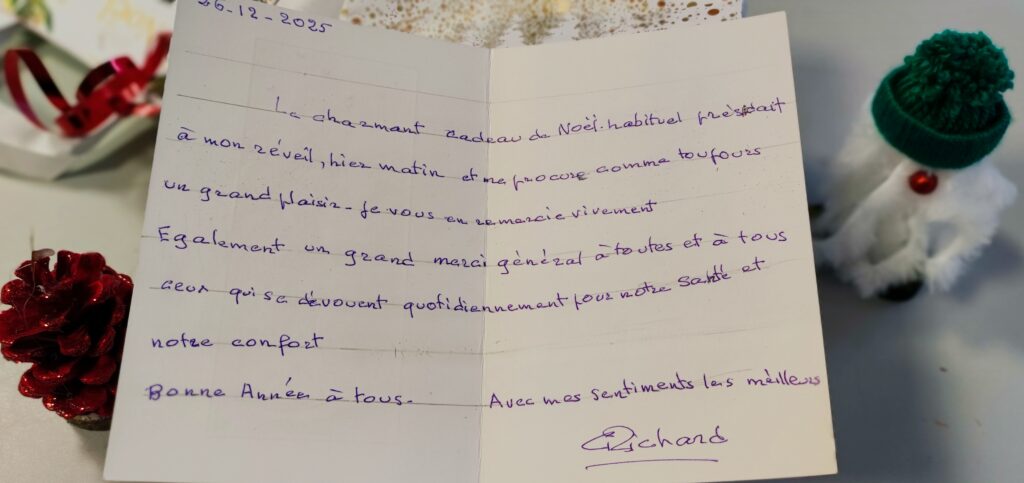 26-12-2025
Le charmant cadeau de Noël habituel présidait
à mon réveil, hier matin et me procure comme toujours
un grand plaisir - Je vous en remercie vivement
Egalement un grand merci général à toutes et à tous
ceux qui se dévouent quotidiennement pour notre santé et
notre confort
Bonne Année à tous. Avec mes sentiments les meilleurs
Richard